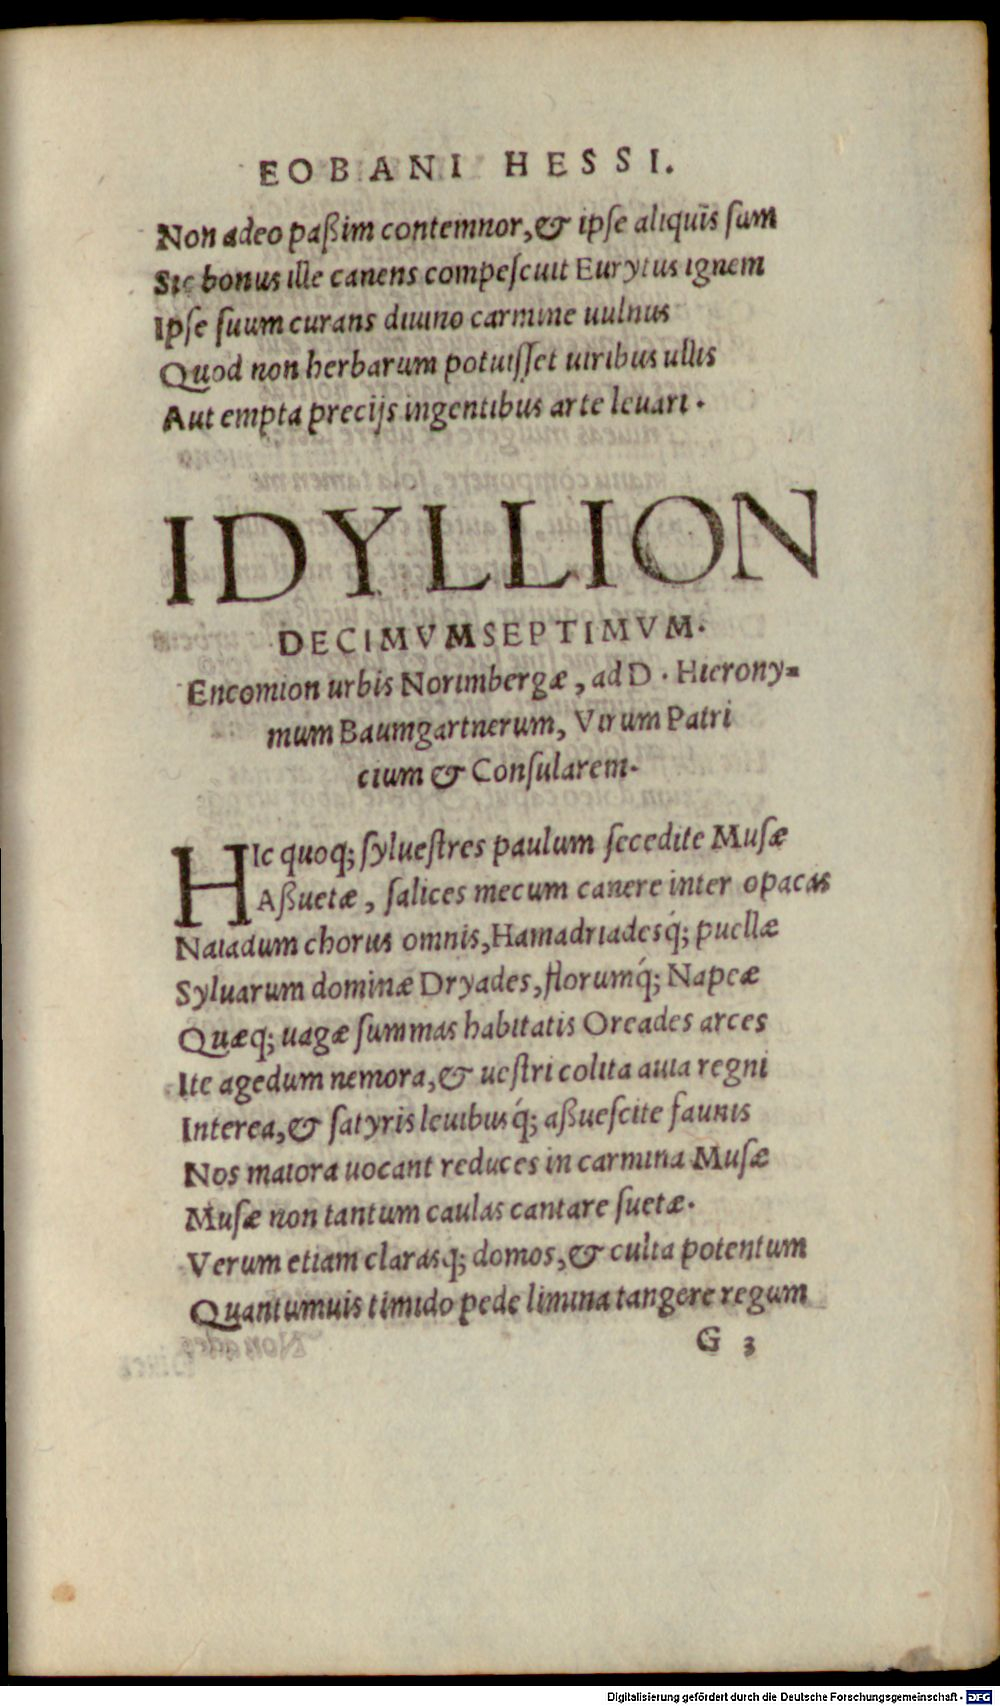 EOBANI HESSI.
Non adeo paßim contemnor, & ipse aliquis̄ sum
Sic bonus ille canens compescuit Eurytus ignem
Ipse suum curans diuino carmine uulnus
Quod non herbarum potuisset uiribus ullis
Aut empta precijs ingentibus arte leuari.
IDYLLION
DECIMVMSEPTIMVM.
Encomion urbis Norimbergæ, ad D. Hierony=
mum Baumgartnerum, Virum Patri
cium & Consularem.
HIc quoq; syluestres paulum secedite Musæ
Aßuetæ, salices mecum canere inter opacas
Naiadum chorus omnis, Hamadriadesq́; puellæ
Syluarum dominæ Dryades, florumq́; Napeæ
Quæq; uagæ summas habitatis Oreades arces
Ite agedum nemora, & uestri colita auia regni
Interea, & satyris leuibusq́; aßuescite faunis
Nos maiora uocant reduces in carmina Musæ
Musæ non tantum caulas cantare suetæ.
Verum etiam clarasq; domos, & culta potentum
Quantumuis timido pede limina tangere regum
G 3
Digitalisierung gefördert durch die Deutsche Forschungsgemeinschaft - DFG